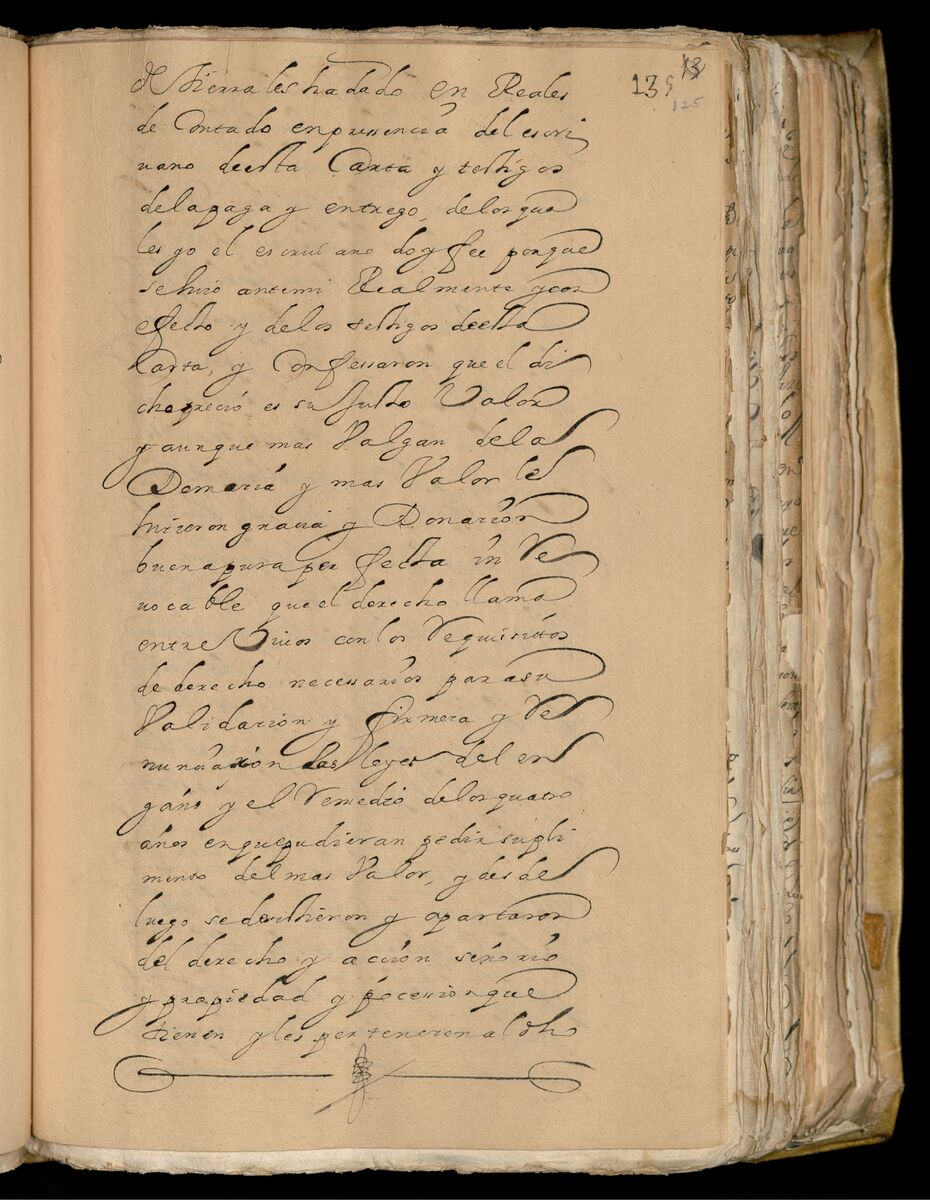 13
135
125
de tierra les ha dado en Reales
de Contado en pressencia del escri
uano deesta Carta y testigos
dela paga y entrego, delos qua
les yo el escriuano doy fee porque
se hizo antemi Realmente y con
efecto y delos testigos deesta
Carta, y Confessaron que el di
cho precio es su Justo Valor
y aunque mas Valgan dela
Demacia y mas Valor les
hizieron gracia y Donacion
buena pura perfecta in Re
uocable que el derecho llama
entre Viuos con los Requisittos
de derecho necessarios para su
Validacion y firmeza y Re
nunciaxion las leyes del en
gaño y el Remedio delos quatro
años en que pudieran pedir supli
miento del mas Valor, y desde
luego se desistieron y apartaron
del derecho y accion señorio
y propiedad y pocession que
tienen y les pertenecen al dho